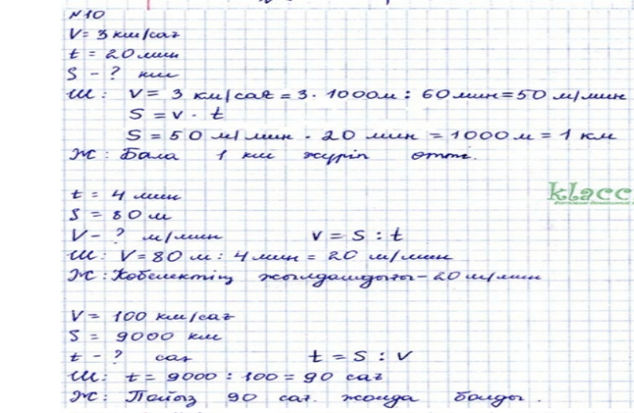 №10
V = 3 км/сағ
t = 20 мин
S - ? км
Ш: V = 3 км/сағ = 3 · 1000м : 60мин = 50 м/мин
S = v · t
S = 50 м/мин · 20 мин = 1000 м = 1 км
Ж: Бала 1 км жүріп өтті.
t = 4 мин
S = 80 м
V - ? м/мин V = S : t
klacc
Ш: V = 80 м : 4 мин = 20 м/мин
Ж: Көбелектің жылдамдығы - 20 м/мин
V = 100 км/сағ
S = 9000 км
t - ? сағ t = S : V
Ш: t = 9000 : 100 = 90 сағ
Ж: Пойыз 90 сағ. жолда болды.